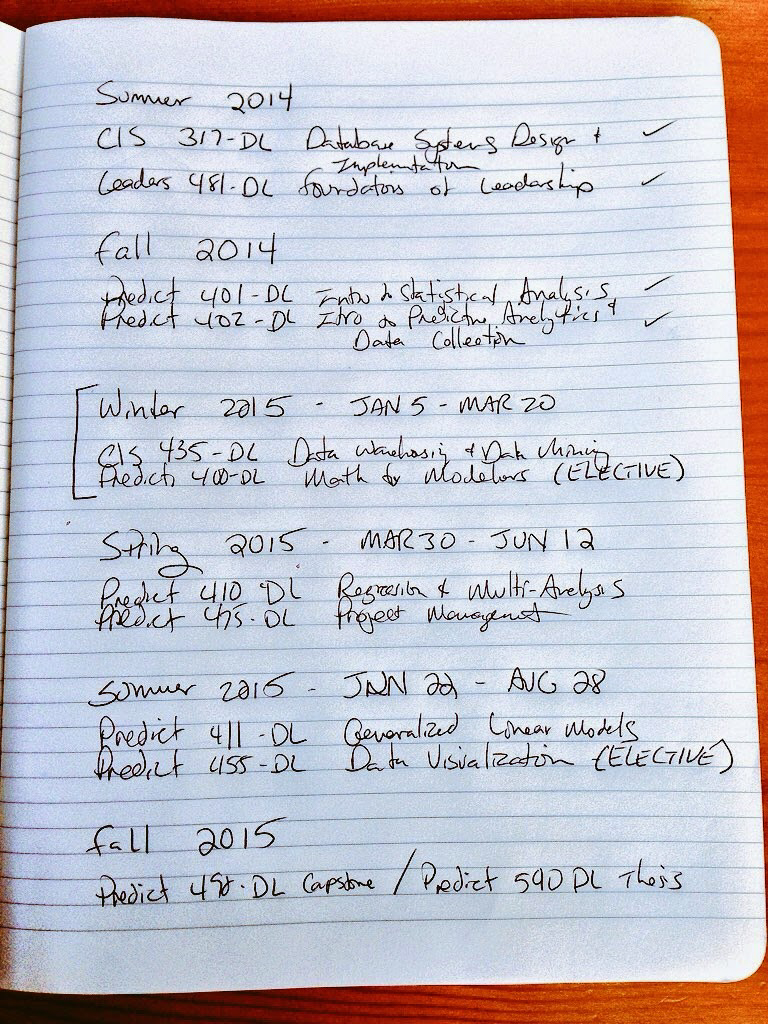 Summer 2014
CIS 317-DL Database Systems Design & ✓
Implementation
Leaders 481-DL Foundations of Leadership ✓
Fall 2014
Predict 401-DL Intro to Statistical Analysis ✓
Predict 402-DL Intro to Predictive Analytics & ✓
Data Collection
Winter 2015 - JAN 5 - MAR 20
CIS 435-DL Data Warehousing & Data Mining
Predict 400-DL Math for Modelers (ELECTIVE)
Spring 2015 - MAR 30 - JUN 12
Predict 410 DL Regression & Multi-Analysis
Predict 475-DL Project Management
Summer 2015 - JUN 22 - AUG 28
Predict 411-DL Generalized Linear Models
Predict 455-DL Data Visualization (ELECTIVE)
Fall 2015
Predict 498-DL Capstone / Predict 590 DL Thesis